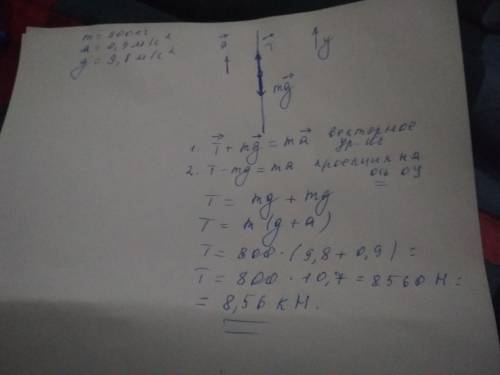 m = 800 кг
a = 0,9 м/с²
g = 9,8 м/с²
a T y
mg
1. T + mg = ma векторное
ур-ие
2. T - mg = ma проекция на
ось OY
T = mg + mg
T = m(g + a)
T = 800 · (9,8 + 0,9) =
T = 800 · 10,7 = 8560 H =
= 8,56 кН.